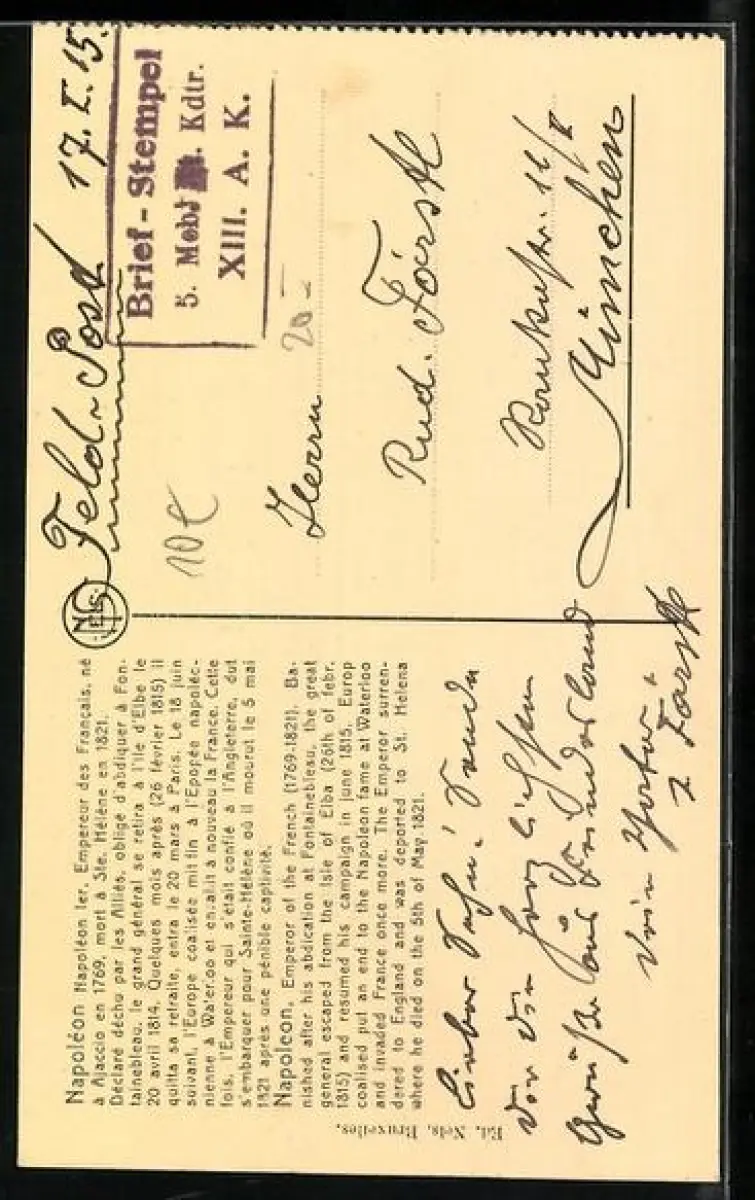 Napoléon Napoléon 1er, Empereur des Français, né
à Ajaccio en 1769, mort à Ste. Hélène en 1821.
Déclaré déchu par les Alliés, obligé d'abdiquer à Fon-
tainebleau, le grand général se retira à l'île d'Elbe le
20 avril 1814. Quelques mois après (26 février 1815) il
quitta sa retraite, entra le 20 mars à Paris. Le 18 juin
suivant, l'Europe coalisée mit fin à l'Epopée napoléo-
nienne à Waterloo et envahit à nouveau la France. Cette
fois, l'Empereur qui s'était confié à l'Angleterre, dut
s'embarquer pour Sainte-Hélène où il mourut le 5 mai
1821 après une pénible captivité.
Napoleon, Emperor of the French (1769-1821). Ba-
nished after his abdication at Fontainebleau, the great
general escaped from the Isle of Elba (26th of febr.
1815) and resumed his campaign in june 1815. Europ
coalised put an end to the Napoleon fame at Waterloo
and invaded France once more. The Emperor surren-
dered to England and was deported to St. Helena
where he died on the 5th of May 1821.
Lieber Sohn! Sende
Dir die herzlichsten
Grüße aus Feindesland
Dein Vater
Ed. Nels, Bruxelles.
NELS
Feld-Post 17.I.15.
Brief-Stempel
5. Mob. Kdtr.
XIII. A. K.
20-
10€
Herrn
Rud. Först
11/I
München